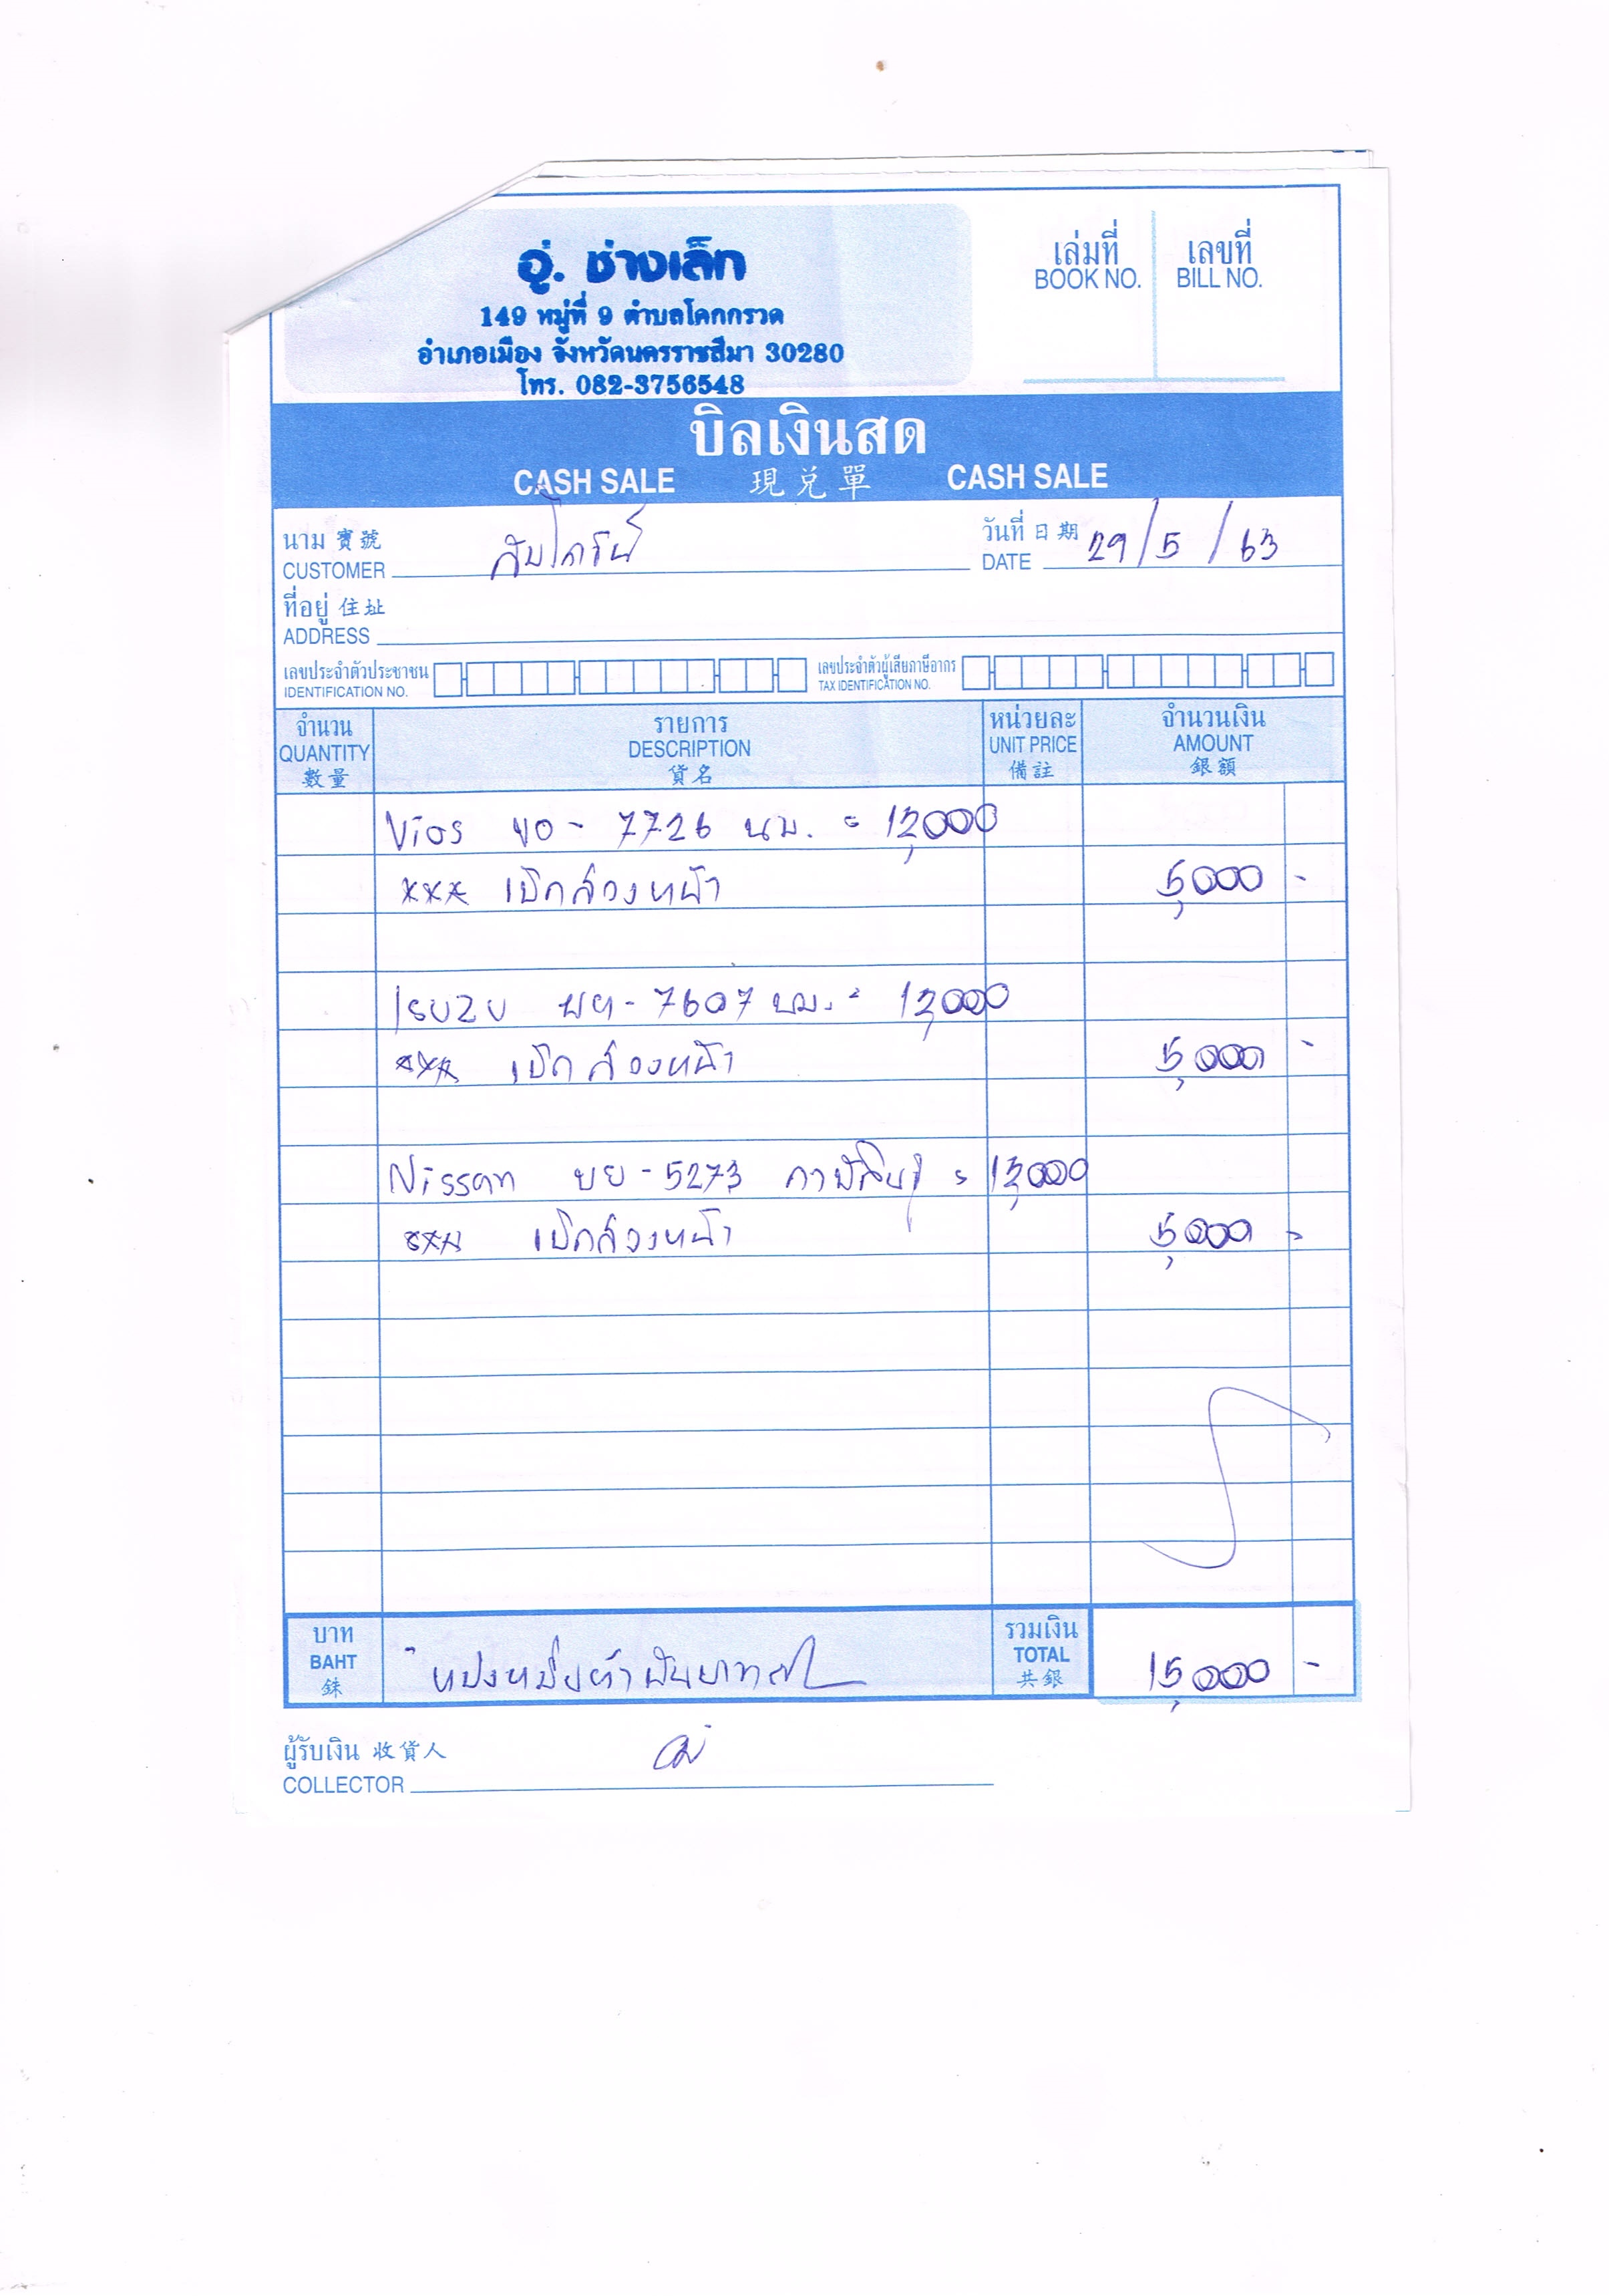 อู่. ช่างเล็ก
149 หมู่ที่ 9 ตำบลโคกกรวด
อำเภอเมือง จังหวัดนครราชสีมา 30280
โทร. 082-3756548
เล่มที่ เลขที่
BOOK NO. BILL NO.
บิลเงินสด
CASH SALE 現兌單 CASH SALE
นาม 寶號 วันที่ 日期
CUSTOMER DATE 29/5/63
ที่อยู่ 住址
ADDRESS
เลขประจำตัวประชาชน เลขประจำตัวผู้เสียภาษีอากร
IDENTIFICATION NO. TAX IDENTIFICATION NO.
จำนวน รายการ หน่วยละ จำนวนเงิน
QUANTITY DESCRIPTION UNIT PRICE AMOUNT
數量 貨名 備註 銀額
Vios ขอ - 7726 นม. =
*** เบิกล่วงหน้า 5,000 -
Isuzu - 7607 นม. =
*** เบิกล่วงหน้า 5,000 -
Nissan ยย - 5273 กาฬสินธุ์ =
*** เบิกล่วงหน้า 5,000 -
บาท รวมเงิน
BAHT หนึ่งหมื่นห้าพันบาท TOTAL 15,000 -
銖 共銀
ผู้รับเงิน 收貨人
COLLECTOR